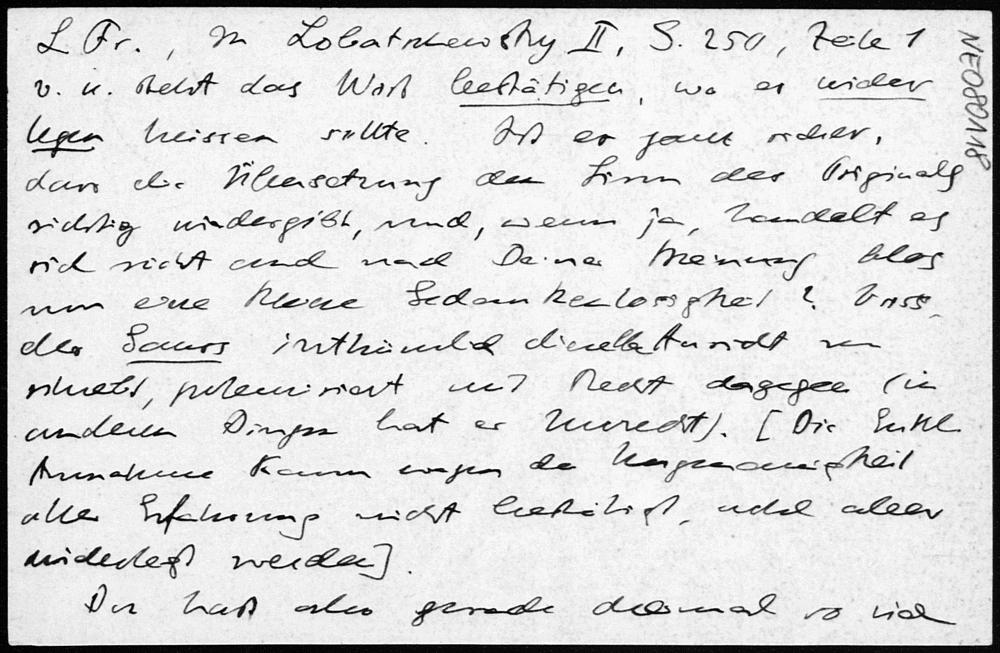 L Fr., In Lobatschewsky II, S. 250, Zeile 1
v. u. steht das Wort bestätigen, wo es wider
legen heissen sollte. Ist es ganz sicher,
dass die Übersetzung den Sinn des Originals
richtig wiedergibt, und, wenn ja, handelt es
sich nicht auch nach Deiner Meinung blos
um eine kleine Gedankenlosigkeit?
der Gauss irrthümlich dieselbe Ansicht zu
schiebt, polemisiert mit Recht dagegen (in
anderen Dingen hat er Unrecht). [Die Eukl.
Annahme kann wegen der Ungenauigkeit
aller Erfahrung nicht bestätigt, wohl aber
widerlegt werden].
Du hast also gerade diesmal so viel
NEO80018